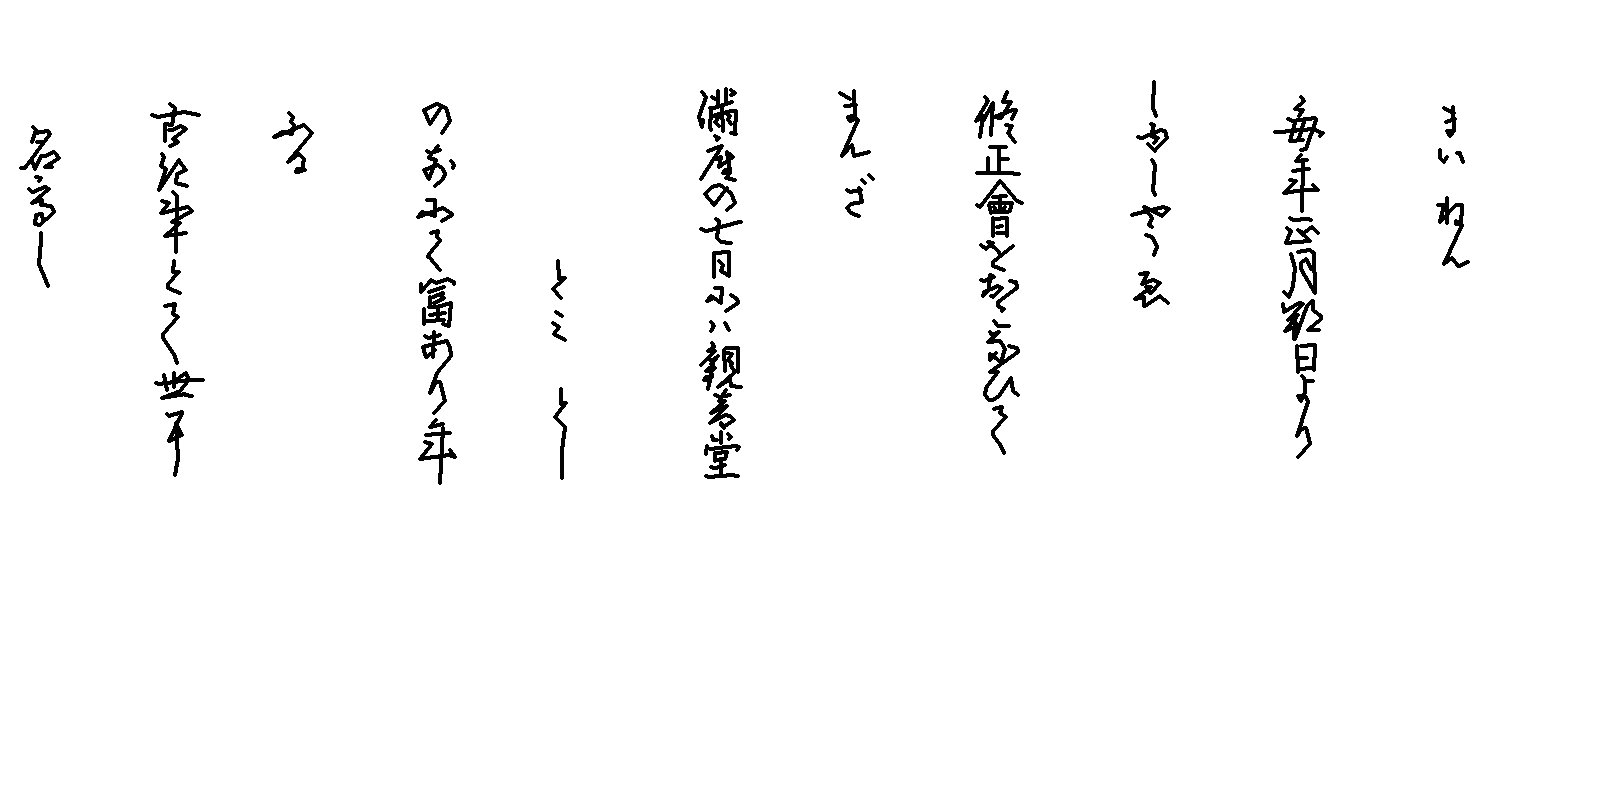 まいねん
毎年正月朔日より
しゆしやうゑ
修正會をおこなひて
まんざ
満座の七日にハ観音堂
とミ とし
の前にて富あり年
ふる
古き事とて世に
名高し